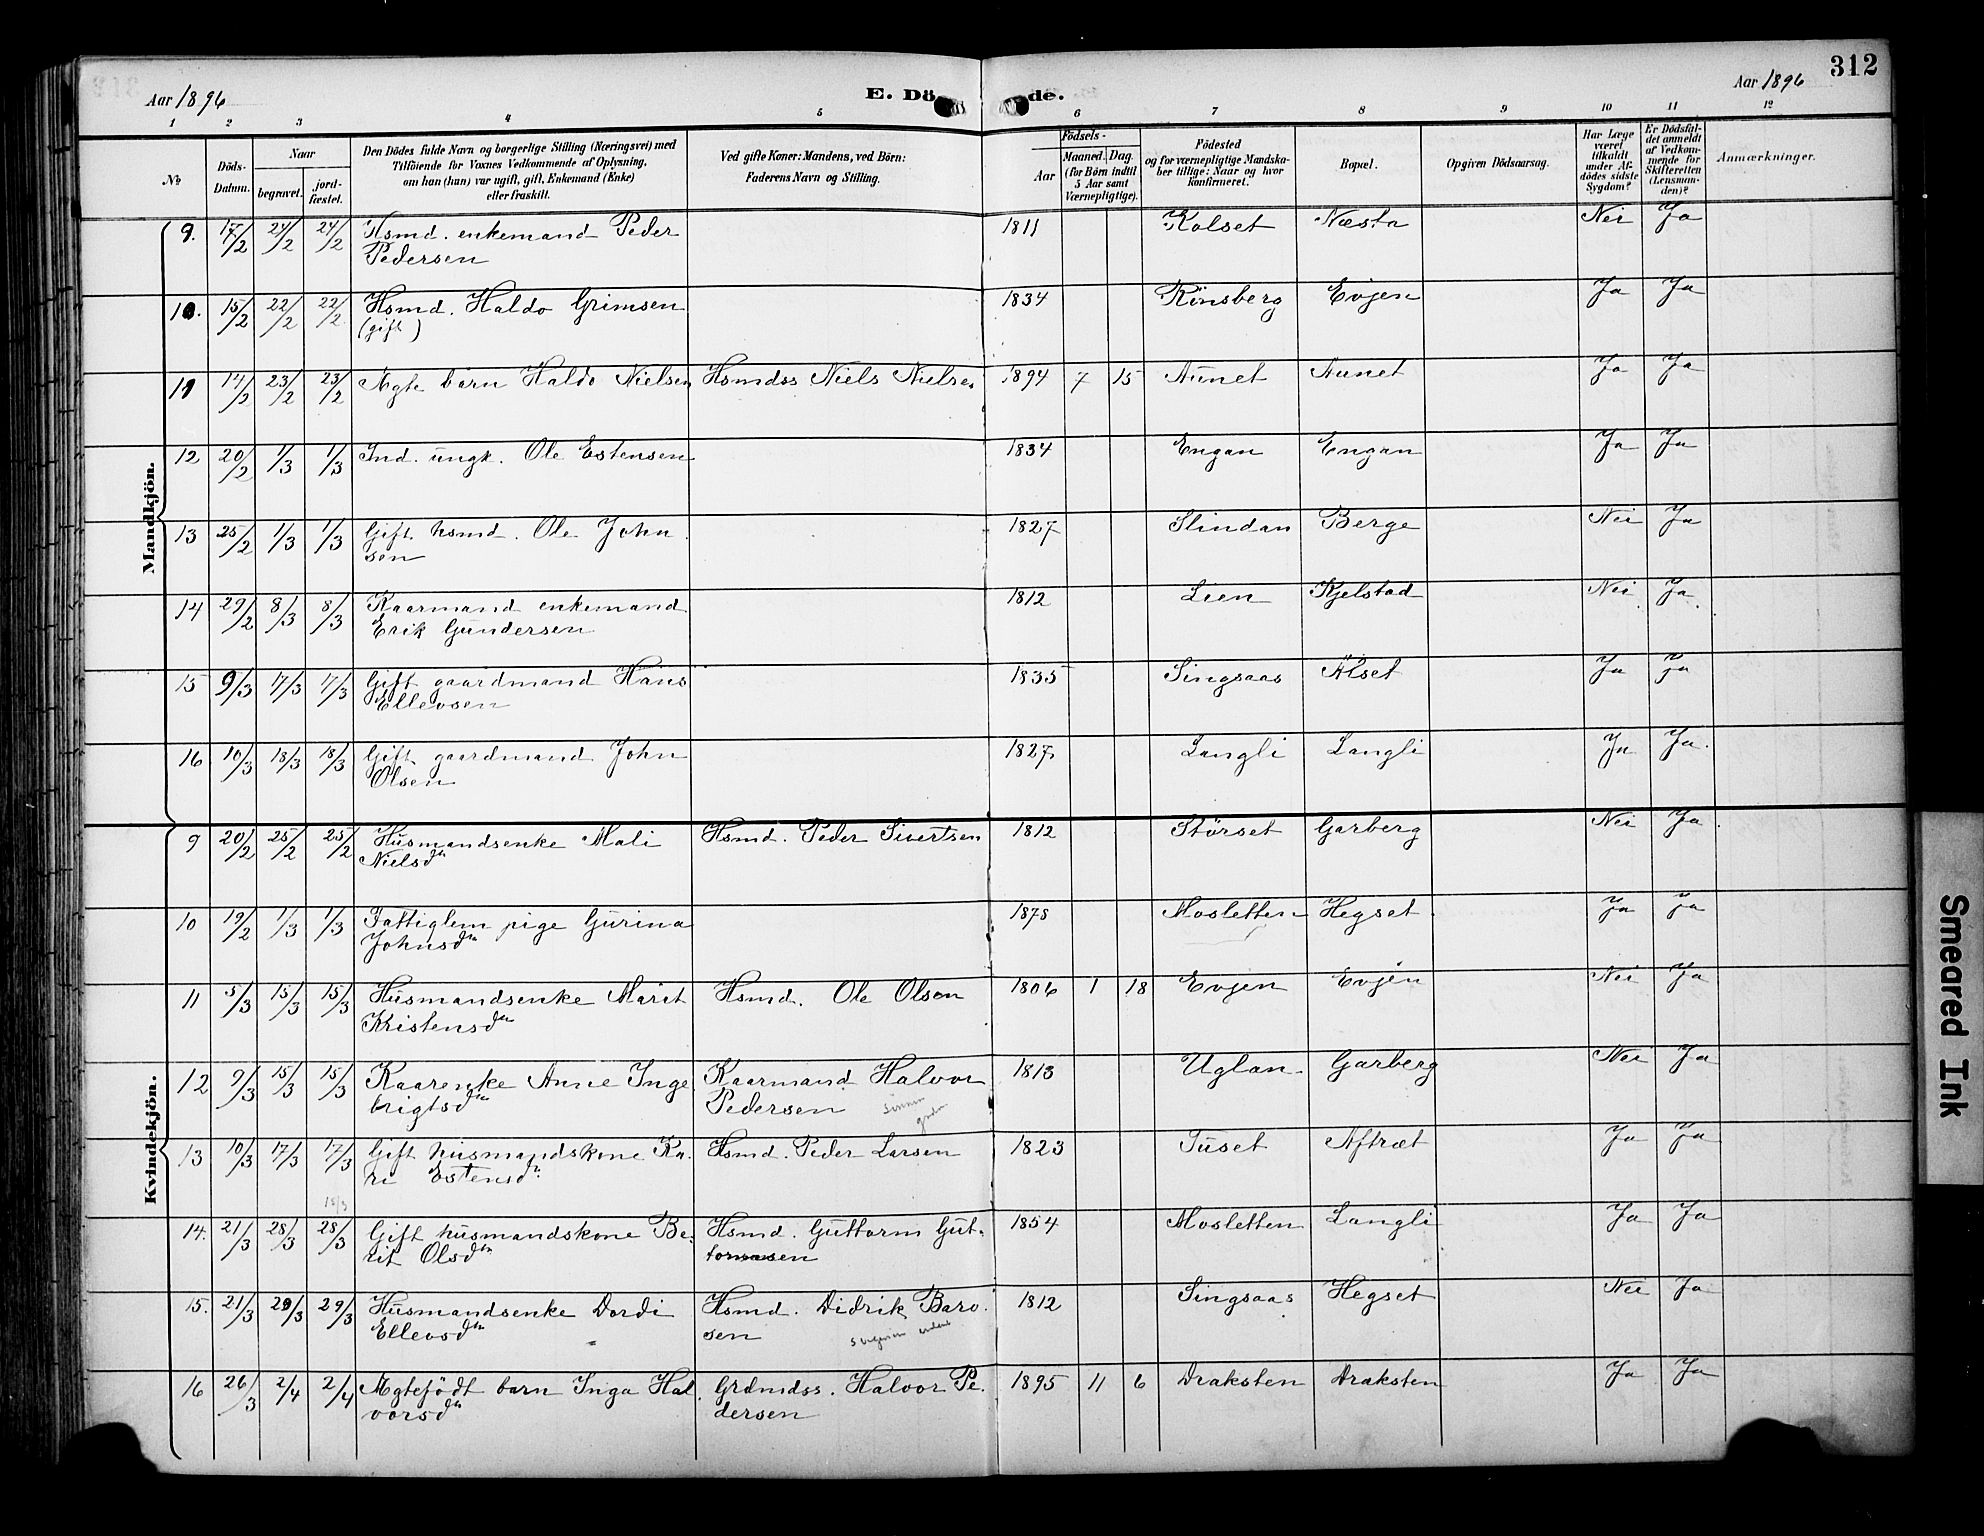 312
Aar 1896 E. Döde. Aar 1896
1 2 3 4 5 6 7 8 9 10 11 12
No
Döds-Datum.
Naar
begravet.
jord-fæstet.
Den Dödes fulde Navn og borgerlige Stilling (Næringsvei) med
Tilföiende for Voxnes Vedkommende af Oplysning,
om han (hun) var ugift, gift, Enkemand (Enke)
eller fraskilt.
Ved gifte Koner: Mandens, ved Börn:
Faderens Navn og Stilling.
Födsels-
Aar
Maaned. Dag.
(for Börn indtil
5 Aar samt
Værnepligtige).
Födested
og for værnepligtige Mandska-
ber tillige: Naar og hvor
konfirmeret.
Bopæl.
Opgiven Dödsaarsag.
Har Læge
været
tilkaldt
under Af-
dödes sidste
Sygdom?
Er Dödsfal-
det anmeldt
af Vedkom-
mende for
Skifteretten
(Lensman-
den)?
Anmærkninger.
Mandkjön.
9. 17/2 24/2 24/2 Hsmd. enkemand Peder 1811 Kolset Næsta Nei Ja
Pedersen
10. 15/2 22/2 22/2 Hsmd. Haldo Grimsen 1834 Rönsberg Evjen Ja Ja
(gift)
11 14/2 23/2 23/2 Ægte barn Haldo Nielsen Hsmdss Niels Nielsen 1894 7 15 Aunet Aunet Ja Ja
12 20/2 1/3 1/3 Ind. ungk. Ole Estensen 1834 Engan Engan Ja Ja
13 25/2 1/3 1/3 Gift hsmd. Ole John 1827 Slindan Berge Nei Ja
sen
14 29/2 8/3 8/3 Kaarmand enkemand 1812 Lien Kjelstad Nei Ja
Erik Gundersen
15 9/3 17/3 17/3 Gift gaardmand Hans 1835 Singsaas Alset Ja Ja
Ellevsen
16 10/3 18/3 18/3 Gift gaardmand John 1827 Langli Langli Ja Ja
Olsen
Kvindekjön.
9 20/2 25/2 25/2 Husmandsenke Mali Hsmd. Peder Sivertsen 1812 Störset Garberg Nei Ja
Nielsdtr
10 19/2 1/3 1/3 Fattiglem pige Gurina 1878 Mosletten Hegset Ja Ja
Johnsdtr
11 5/3 15/3 15/3 Husmandsenke Marit Hsmd. Ole Olsen 1806 1 18 Evjen Evjen Nei Ja
Kristensdtr
12 9/3 15/3 15/3 Kaarenke Anne Inge Kaarmand Halvor 1813 Uglan Garberg Nei Ja
brigtsdtr Pedersen
13 10/3 17/3 17/3 Gift husmandskone Ka- Hsmd. Peder Larsen 1823 Tuset Aftræt Ja Ja
ri Estensdtr
14. 21/3 28/3 28/3 Gift husmandskone Be- Hsmd. Guttorm Gut- 1854 Mosletten Langli Ja Ja
rit Olsdtr tormsen
15. 21/3 29/3 29/3 Husmandsenke Dordi Hsmd. Didrik Baro- 1812 Singsaas Hegset Nei Ja
Ellevsdtr sen
16 26/3 2/4 2/4 Ægtefödt barn Inga Hal Grdmdss. Halvor Pe- 1895 11 6 Draksten Draksten Ja Ja
vorsdtr dersen
Smeared Ink